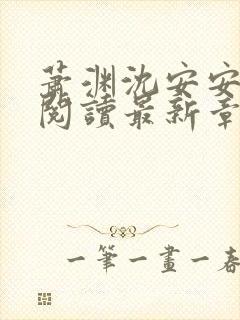 蕭渊沈安安
閱讀最新章
一筆一畫一春